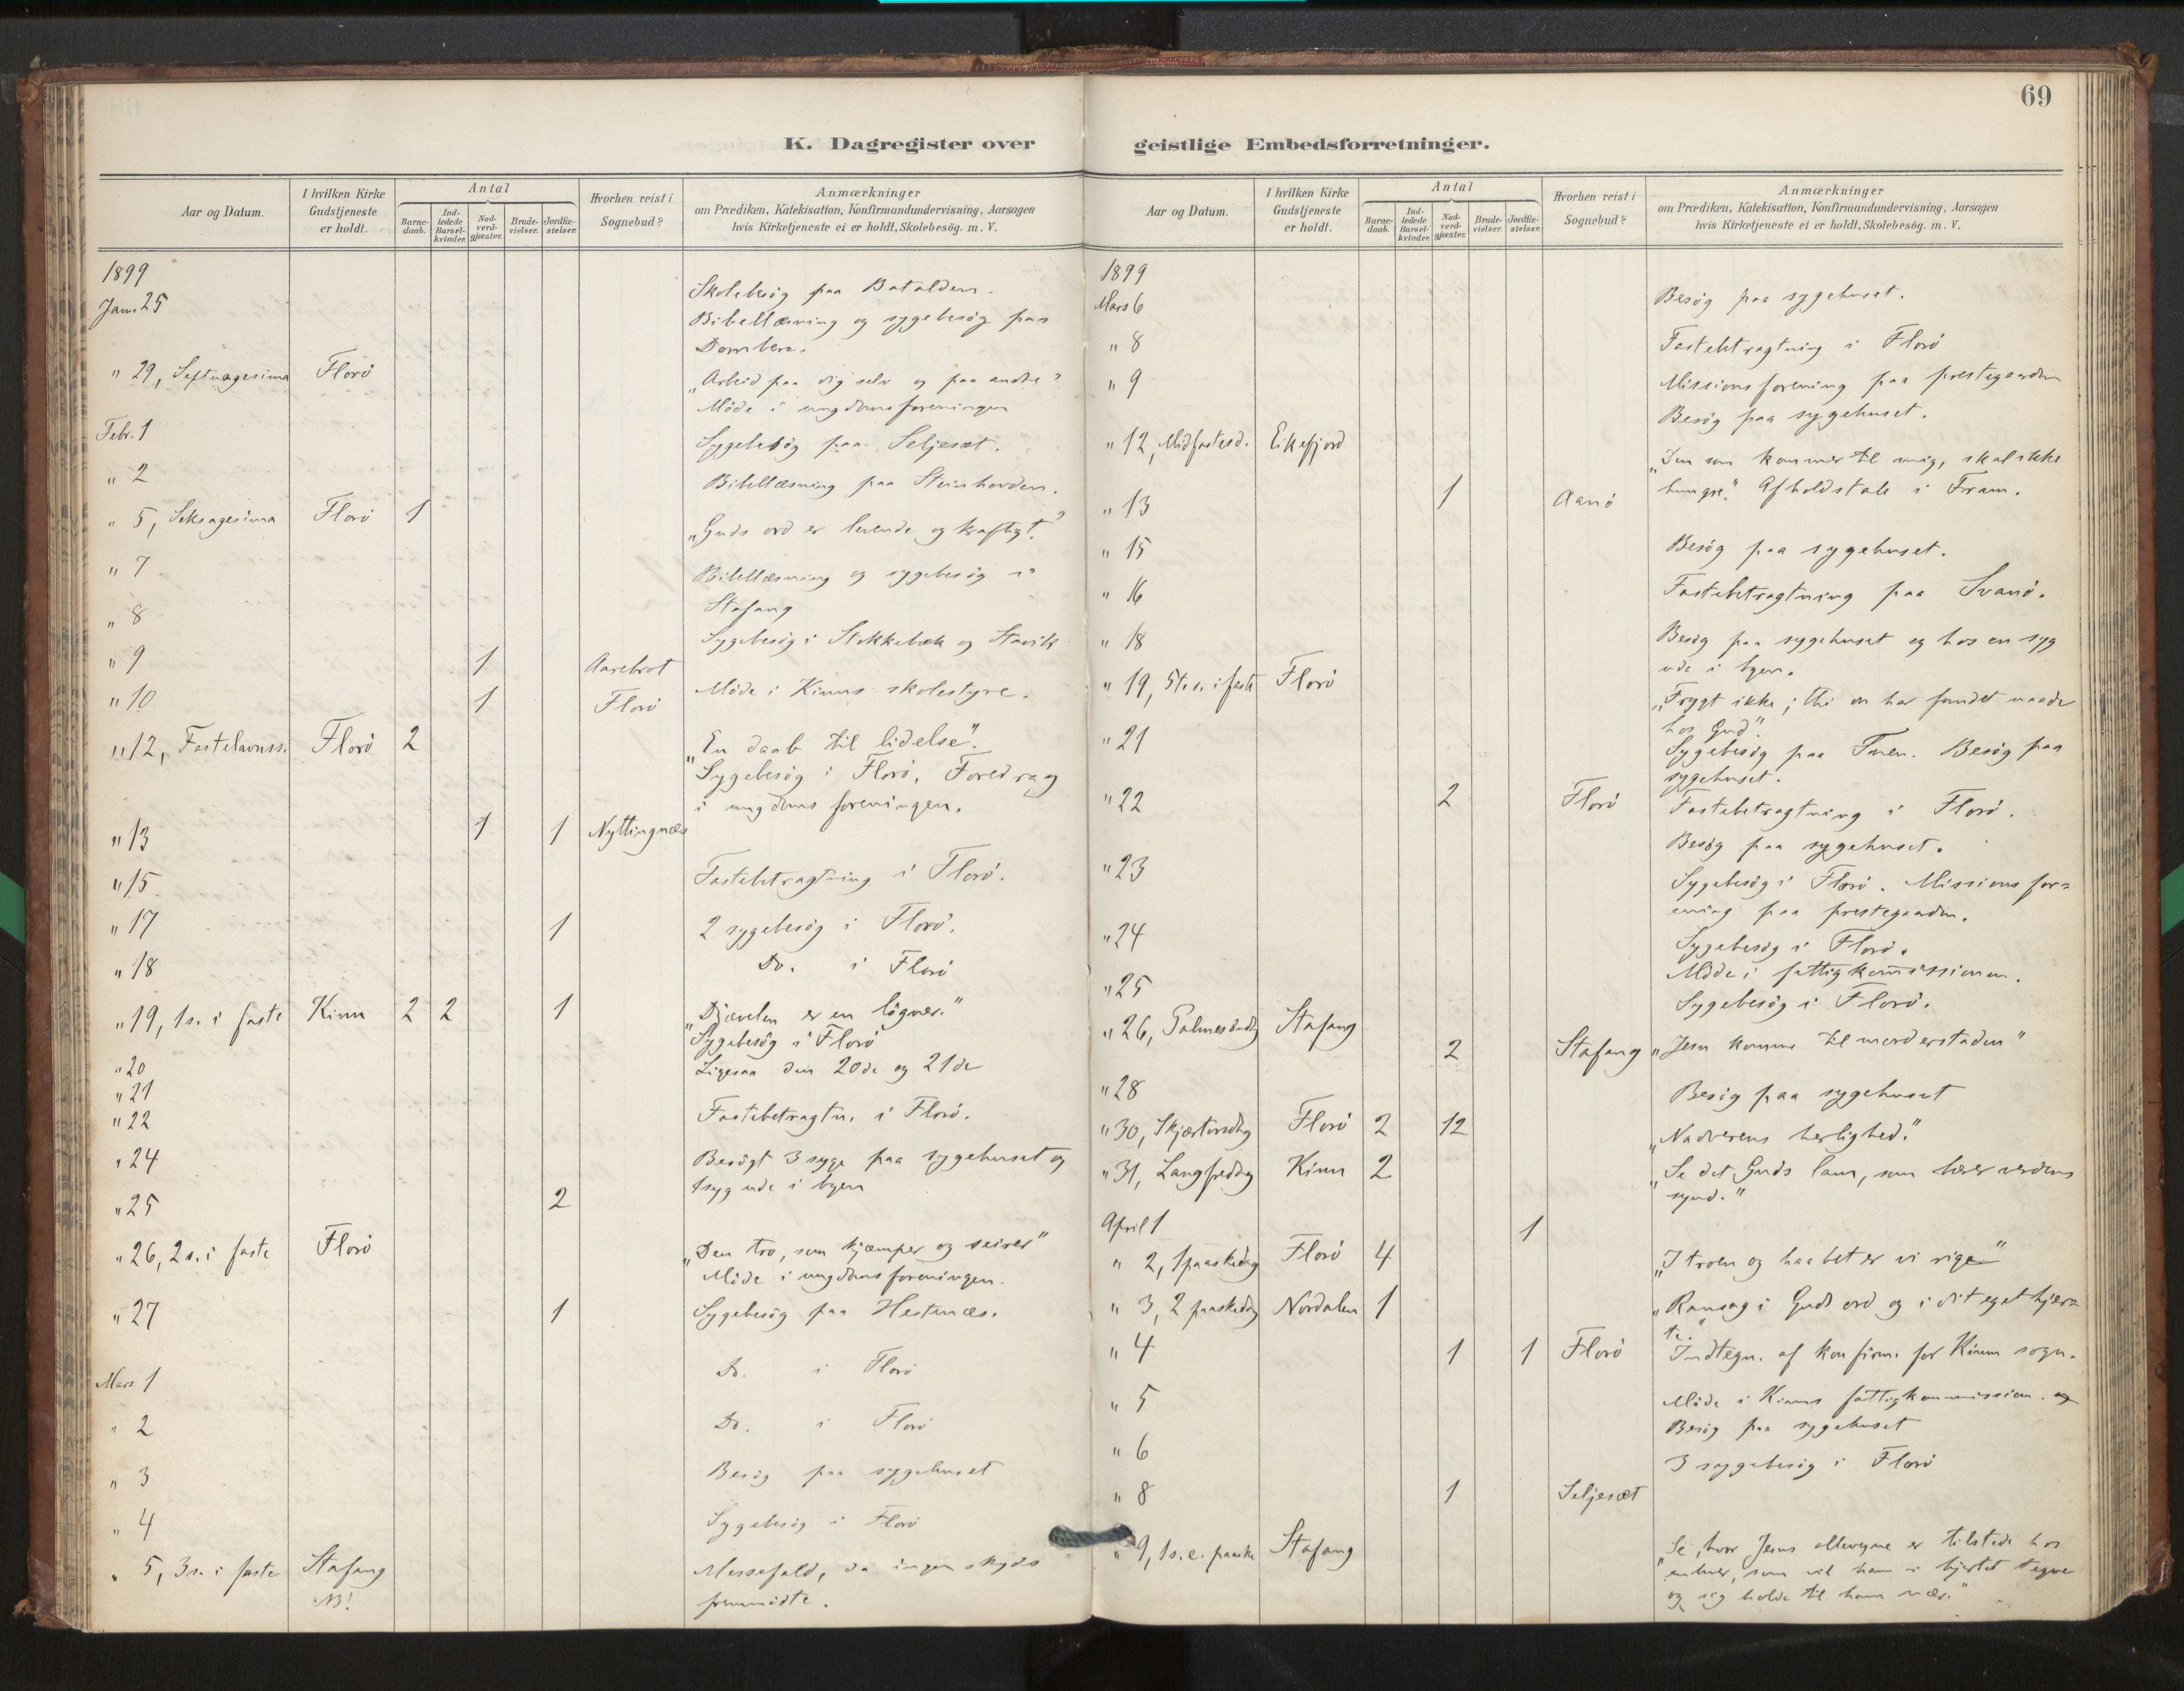 69
K. Dagregister over geistlige Embedsforretninger.
Aar og Datum. I hvilken Kirke Gudstjeneste er holdt. Antal Barnedaab. Indledede Barselkvinder. Nadverdgjæster. Brudevielser. Jordfæstelser. Hvorhen reist i Sognebud? Anmærkninger
om Prædiken, Katekisation, Konfirmandundervisning, Aarsagen
hvis Kirketjeneste ei er holdt, Skolebesög. m. V.
1899
Jan. 25 Skolebesög paa Batalden.
Bibellæsning og sygebesög paa
" 29, Septuagesima Florö „Arbeid paa dig selv og paa andre"
Möde i ungdomsforeningen
Febr. 1 Sygebesög paa Seljesæt.
" 2 Bibellæsning paa Steinhovden.
" 5, Seksagesima Florö 1 „Guds ord er levende og kraftigt."
" 7 Bibellæsning og sygebesög i
Stafang
" 8 Sygebesög i Stokkebæk og Stavik
" 9 1 Aarebrot
" 10 1 Florö Möde i Kinns skolestyre.
" 12, Fastelavnss. Florö 2 „En daab til lidelse".
Sygebesög i Florö. Foredrag
i ungdomsforeningen.
" 13 1 1 Nyttingnæs
" 15 Fastebetragtning i Florö.
" 17 1 2 sygebesög i Florö.
" 18 Do. i Florö
" 19, 1 s. i faste Kinn 2 2 1 „Djævelen er en lögner."
Sygebesög i Florö
" 20 Ligesaa den 20de og 21de
" 21
" 22 Fastebetragtn. i Florö.
" 24 Besögt 3 syge paa sygehuset og
1 syg ude i byen
" 25 2
" 26, 2 s. i faste Florö „Den tro, som kjæmper og seirer"
Möde i ungdomsforeningen.
" 27 1 Sygebesög paa Hestenæs.
Mars 1 Do. i Florö
" 2 Do. i Florö
" 3 Besög paa sygehuset
" 4 Sygebesög i Florö
" 5, 3 s. i faste Stafang Messefald, da ingen skyds
NB! fremmödte.
Aar og Datum. I hvilken Kirke Gudstjeneste er holdt. Antal Barnedaab. Indledede Barselkvinder. Nadverdgjæster. Brudevielser. Jordfæstelser. Hvorhen reist i Sognebud? Anmærkninger
om Prædiken, Katekisation, Konfirmandundervisning, Aarsagen
hvis Kirketjeneste ei er holdt, Skolebesög. m. V.
1899
Mars 6 Besög paa sygehuset.
" 8 Fastebetragtning i Florö
" 9 Missionsforening paa prestegaarden
Besög paa sygehuset.
" 12, Midfastesd. Eikefjord „Den som kommer til mig, skal ikke
hungre." Afholdstale i Fram.
" 13 1 Aanö
" 15 Besög paa sygehuset.
" 16 Fastebetragtning paa Svanö.
" 18 Besög paa sygehuset og hos en syg
ude i byen.
" 19, 5te s. i faste Florö „Frygt ikke; thi du har fundet naade
hos Gud".
" 21 Sygebesög paa Besög paa
sygehuset.
" 22 2 Florö Fastebetragtning i Florö.
Besög paa sygehuset.
" 23 Sygebesög i Florö. Missionsfor=
ening paa prestegaarden.
" 24 Sygebesög i Florö.
Möde i fattigkommissionen.
" 25 Sygebesög i Florö.
" 26, Palmesöndag Stafang 2 Stafang „Jesu komme til morderstaden"
" 28 Besög paa sygehuset
" 30, Skjærtorsdag Florö 2 12 „Nadverens herlighed."
" 31, Langfredag Kinn 2 „Se det Guds lam, som bærer verdens
synd."
April 1 1
" 2, 1 paaskedag Florö 4 „I troen og haabet er vi rige"
" 3, 2 paaskedag Nordalen 1 „Ransag i Guds ord og i dit eget hjer=
te."
" 4 1 1 Florö Indtegn. af konfirm. for Kinn sogn.
" 5 Möde i Kinns fattigkommission. og
Besög paa sygehuset
" 6 3 sygebesög i Florö
" 8 1 Seljesæt
" 9, 1 s. e. paaske Stafang „Se, hvor Jesus allevegne er tilstede hos
enhver, som vil ham i hjertet tegne
og sig holde til ham nær."